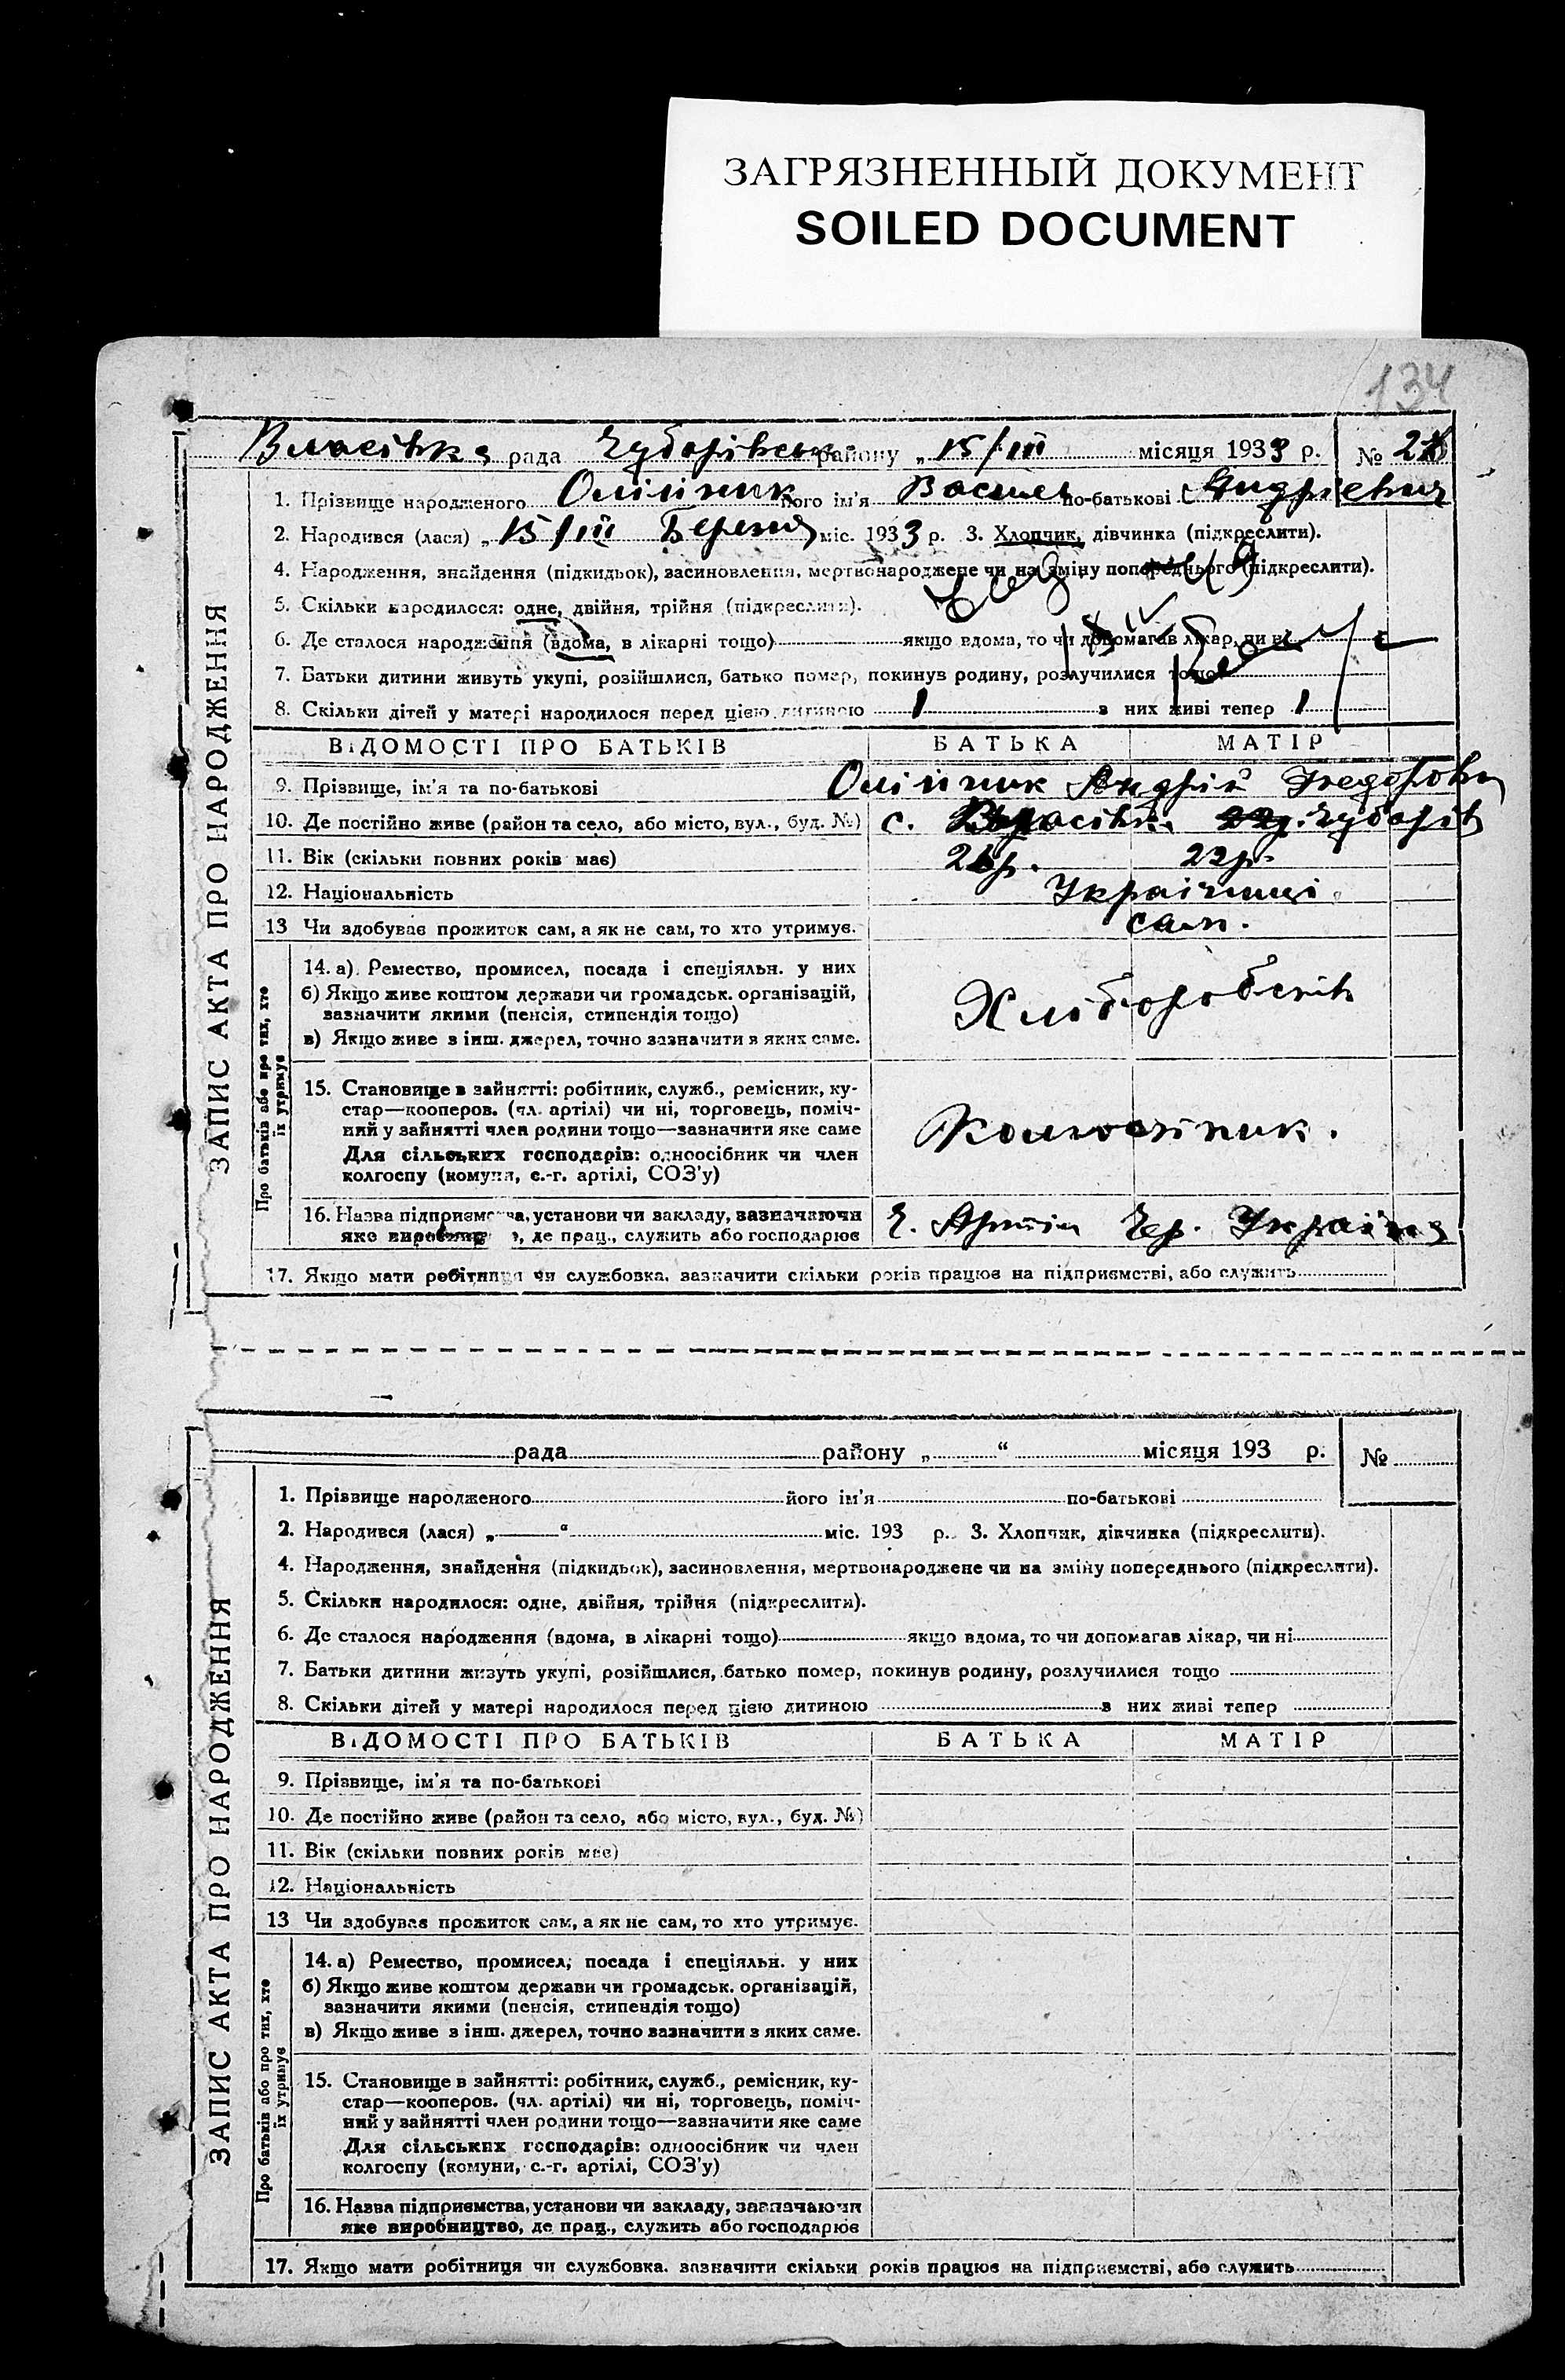 ЗАГРЯЗНЕННЫЙ ДОКУМЕНТ
SOILED DOCUMENT
134
Власівка рада Чубарівськ району „ 15/III місяця 1933 р. №
1. Прізвище народженого Олійник його ім'я Василь по-батькові Андрієвич
2. Народився (лася) „ 15/III Березня міс. 1933 р. 3. Хлопчик, дівчинка (підкреслити).
4. Народження, знайдення (підкидьок), засиновлення, мертвонароджене чи на зміну попереднього (підкреслити).
5. Скільки народилося: одне, двійня, трійня (підкреслити).
6. Де сталося народження (вдома, в лікарні тощо) якщо вдома, то чи допомагав лікар, чи ні
7. Батьки дитини живуть укупі, розійшлися, батько помер, покинув родину, розлучилися тощо
8. Скільки дітей у матері народилося перед цією дитиною 1 з них живі тепер 1
ВІДОМОСТІ ПРО БАТЬКІВ БАТЬКА МАТІР
9. Прізвище, ім'я та по-батькові Олійник Андрій Федоров
10. Де постійно живе (район та село, або місто, вул., буд. №) с. Власівка Чубарів
11. Вік (скільки повних років має) 22р.
12. Національність Українці
13 Чи здобуває прожиток сам, а як не сам, то хто утримує. сам.
Про батьків або про тих, хто їх утримує
14. а) Ремество, промисел, посада і спеціяльн. у них
б) Якщо живе коштом держави чи громадськ. організацій,
зазначити якими (пенсія, стипендія тощо)
в) Якщо живе з інш. джерел, точно зазначити з яких саме.
Хлібороб
15. Становище в зайнятті: робітник, служб., ремісник, ку-
стар—кооперов. (чл. артілі) чи ні, торговець, поміч-
ний у зайнятті член родини тощо—зазначити яке саме
Для сільських господарів: одноосібник чи член
колгоспу (комуни, с.-г. артілі, СОЗ'у)
Колгоспник.
16. Назва підприємства, установи чи закладу, зазначаючи
яке виробництво, де прац., служить або господарює
Артіль Чер. Україна
17. Якщо мати робітниця чи службовка. зазначити скільки років працює на підприємстві, або служить
ЗАПИС АКТА ПРО НАРОДЖЕННЯ
рада району „ “ місяця 193 р. №
1. Прізвище народженого його ім'я по-батькові
2. Народився (лася) „ “ міс. 193 р. 3. Хлопчик, дівчинка (підкреслити).
4. Народження, знайдення (підкидьок), засиновлення, мертвонароджене чи на зміну попереднього (підкреслити).
5. Скільки народилося: одне, двійня, трійня (підкреслити).
6. Де сталося народження (вдома, в лікарні тощо) якщо вдома, то чи допомагав лікар, чи ні
7. Батьки дитини живуть укупі, розійшлися, батько помер, покинув родину, розлучилися тощо
8. Скільки дітей у матері народилося перед цією дитиною з них живі тепер
ВІДОМОСТІ ПРО БАТЬКІВ БАТЬКА МАТІР
9. Прізвище, ім'я та по-батькові
10. Де постійно живе (район та село, або місто, вул., буд. №)
11. Вік (скільки повних років має)
12. Національність
13 Чи здобуває прожиток сам, а як не сам, то хто утримує.
Про батьків або про тих, хто їх утримує
14. а) Ремество, промисел, посада і спеціяльн. у них
б) Якщо живе коштом держави чи громадськ. організацій,
зазначити якими (пенсія, стипендія тощо)
в) Якщо живе з інш. джерел, точно зазначити з яких саме.
15. Становище в зайнятті: робітник, служб., ремісник, ку-
стар—кооперов. (чл. артілі) чи ні, торговець, поміч-
ний у зайнятті член родини тощо—зазначити яке саме
Для сільських господарів: одноосібник чи член
колгоспу (комуни, с.-г. артілі, СОЗ'у)
16. Назва підприємства, установи чи закладу, зазначаючи
яке виробництво, де прац., служить або господарює
17. Якщо мати робітниця чи службовка. зазначити скільки років працює на підприємстві, або служить
ЗАПИС АКТА ПРО НАРОДЖЕННЯ